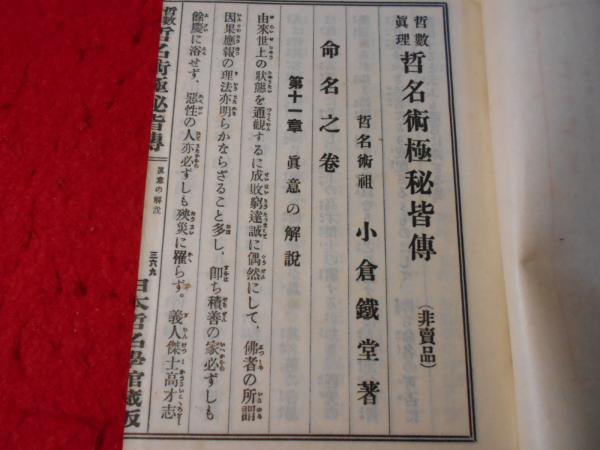 哲數
眞理
哲名術極秘皆傳
(非賣品)
哲名術祖 小倉鐵堂著
命名之卷
第十一章 眞意の解説
由來世上の狀態を通觀するに成敗窮達誠に偶然にして、佛者の所謂
因果應報の理法亦明らかならざること多し、卽ち積善の家必ずしも
餘慶に浴せず、惡性の人亦必ずしも殃災に罹らず。義人傑士高才志
哲數 哲名術極秘皆傳 眞意の解説 三六九 日本哲名學館藏版